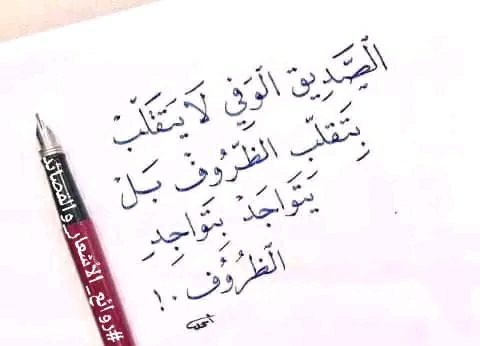 الصَّدِيق الوَفِي لَا يَتَقَلَّبْ
بِتَقلّبِ الظّرُوفْ بَلْ
يَتَوَاجَدْ بِتَوَاجِدِ
الظرُوُف .!
#روائع_الأشعار_والقصائد